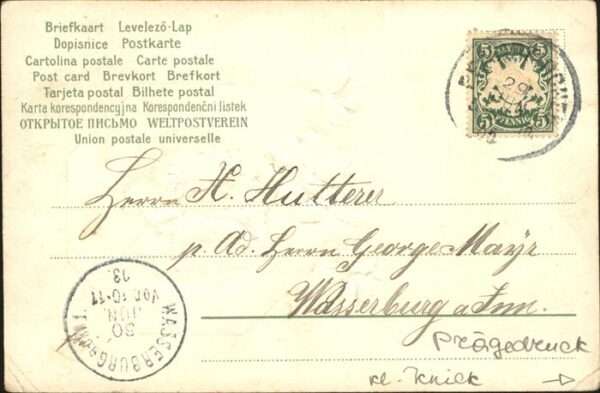 Briefkaart Levelező-Lap
Dopisnice Postkarte
Cartolina postale Carte postale
Post card Brevkort Brefkort
Tarjeta postal Bilhete postal
Karta korespondencyjna Korespondenční listek
ОТКРЫТОЕ ПИСЬМО WELTPOSTVEREIN
Union postale universelle
5 BAYERN 5
5 PFENNIG 5
29
Herrn H. Hutterer
p. Ad. Herrn George Mayr
Wasserburg a. Inn.
WASSERBURG
30
JUN.
Vor. 10-11
13.
Prägedruck
kl. Knick